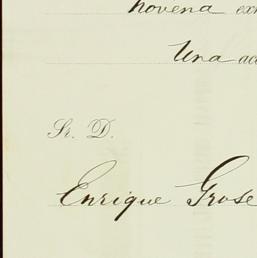 novena
Una
Sr. D.
Enrique Grose